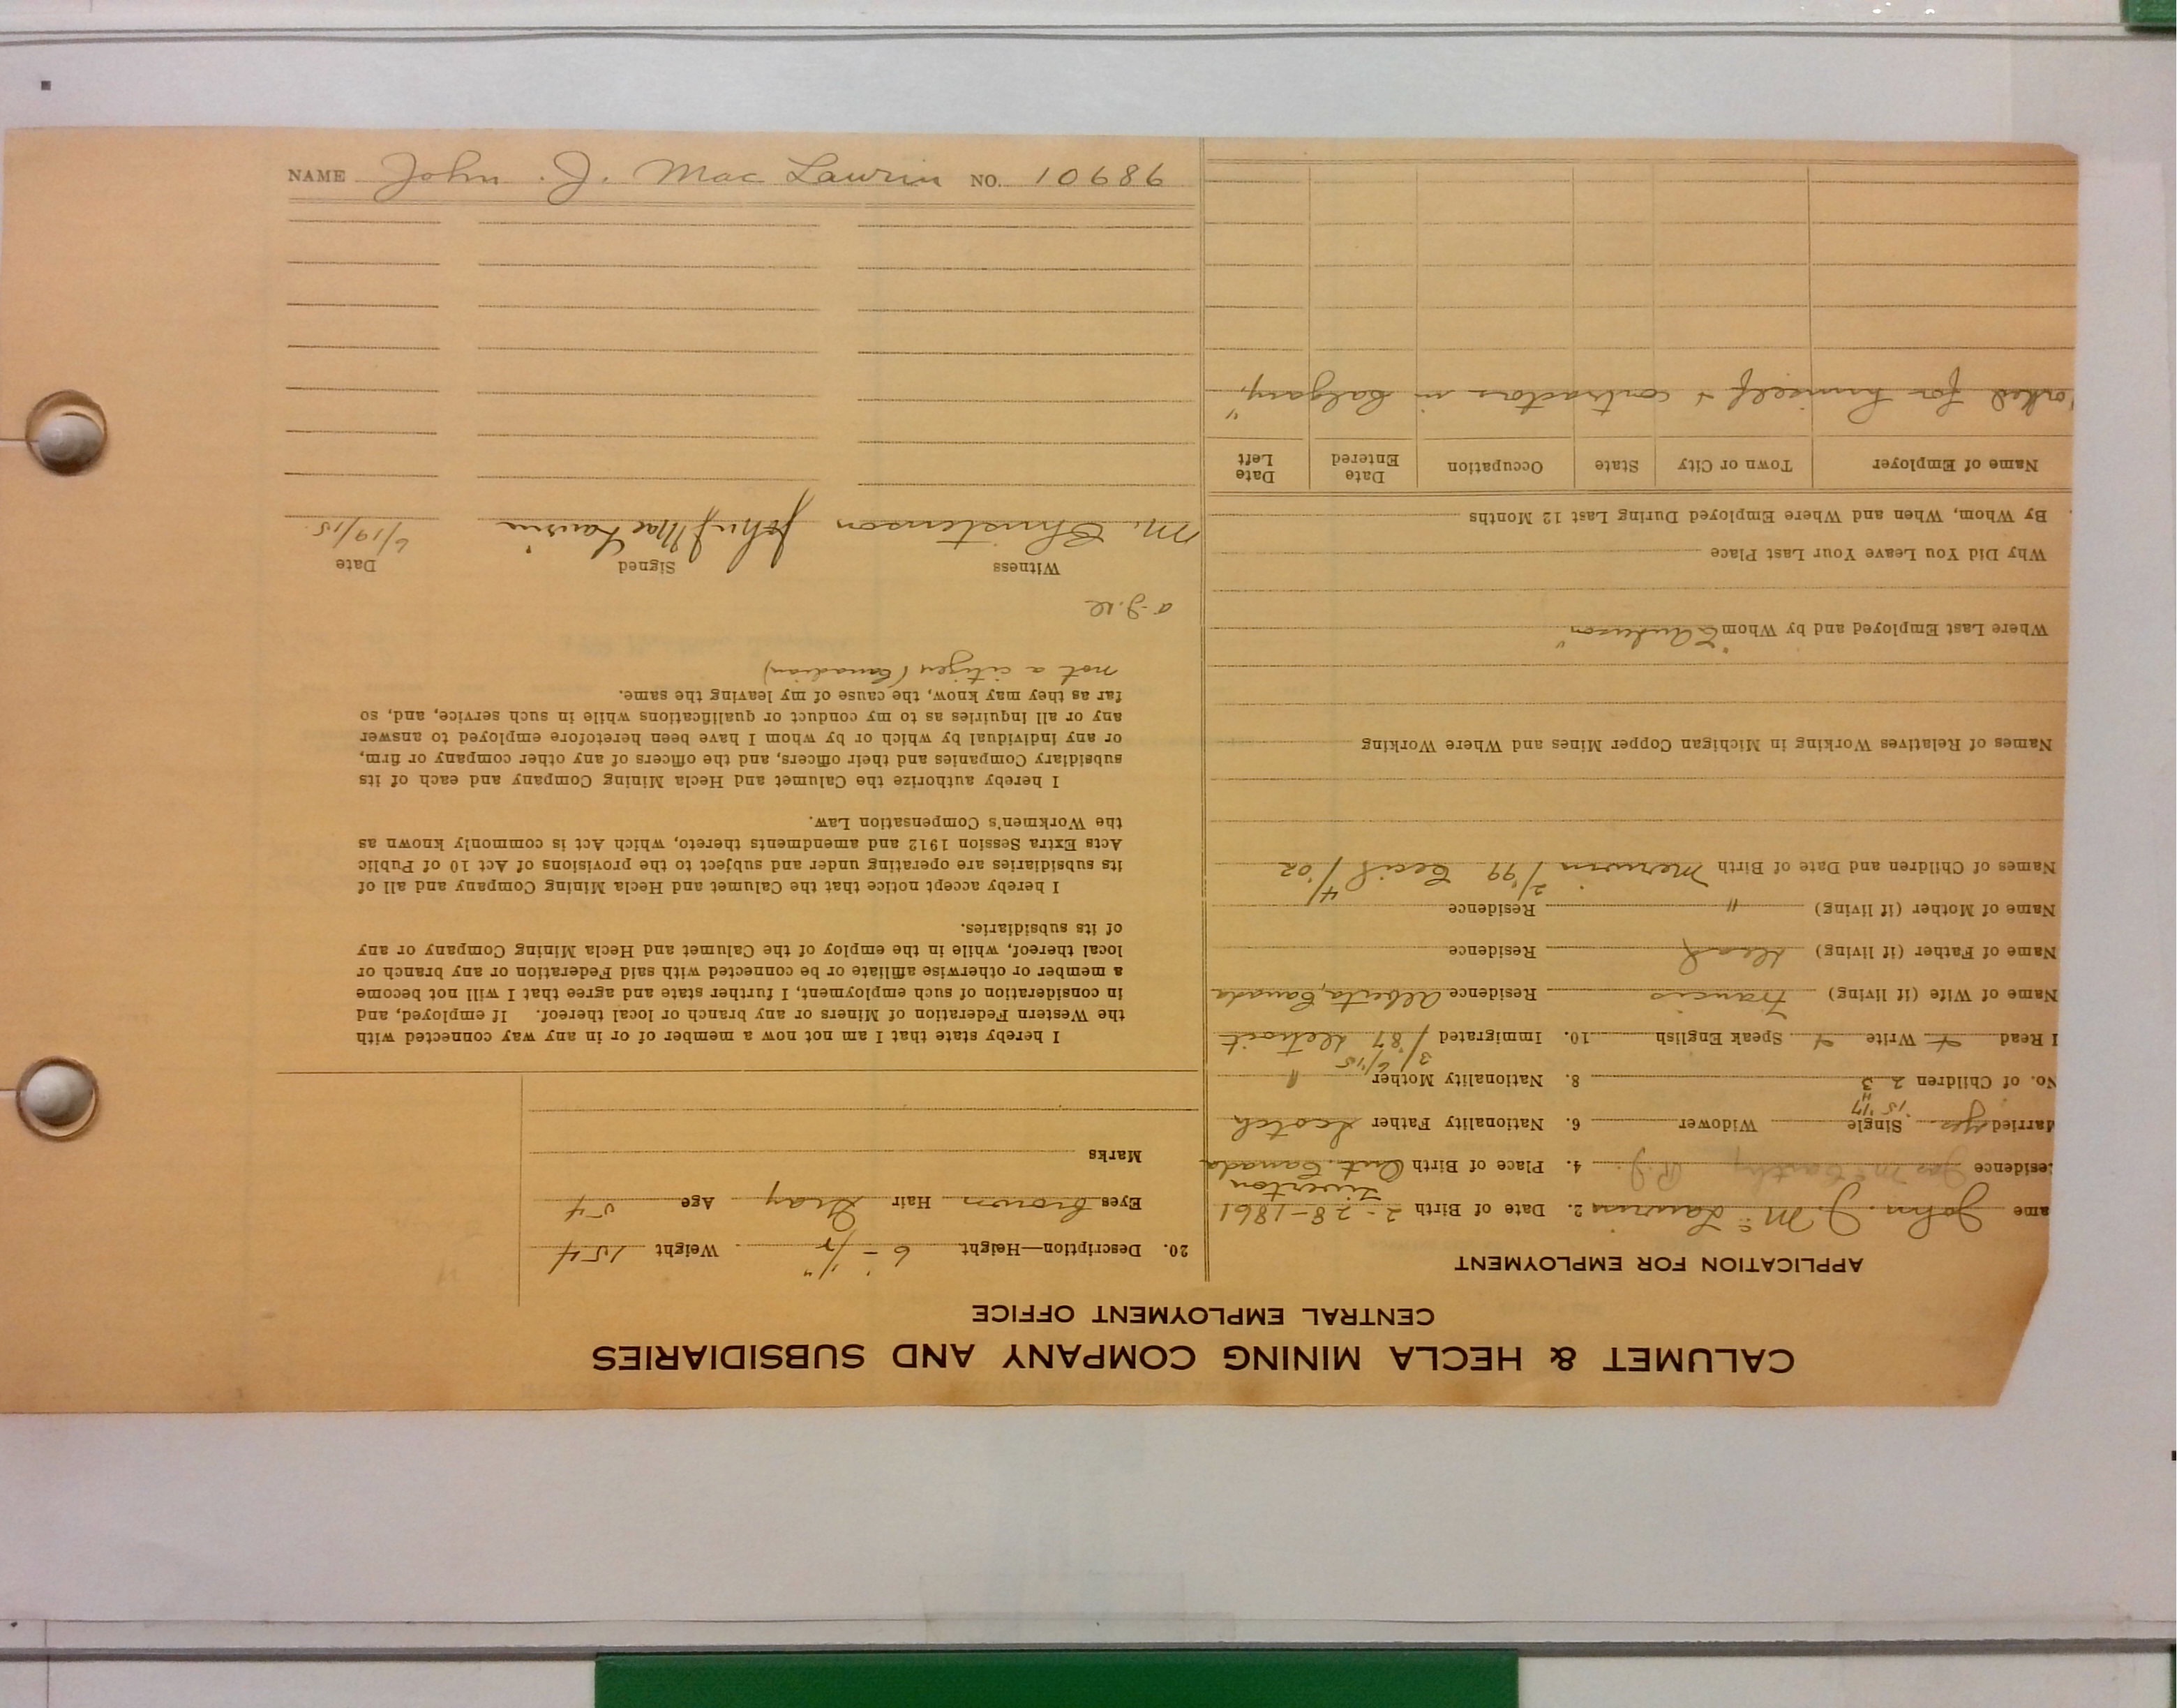 CALUMET & HECLA MINING COMPANY AND SUBSIDIARIES
CENTRAL EMPLOYMENT OFFICE
APPLICATION FOR EMPLOYMENT
ame John. J. Mc Laurin 2. Date of Birth 2-28-1861
Tiverton
esidence Jas McCarthy R.J. 4. Place of Birth Ont. Canada
Married yes. Single Widower 6. Nationality Father Scotch
'15 '17
No. of Children 2 3 8. Nationality Mother "
3/ 6/'15
I Read Write Speak English 10. Immigrated /87 Detroit
Name of Wife (if living) Francis Residence Alberta, Canada
Name of Father (if living) Dead Residence
Name of Mother (if living) " Residence
Names of Children and Date of Birth Merwin 2/'99 Cecil 4/'02
Names of Relatives Working in Michigan Copper Mines and Where Working
Where Last Employed and by Whom "E Anderson"
Why Did You Leave Your Last Place
By Whom, When and Where Employed During Last 12 Months
Name of Employer Town or City State Occupation Date Entered Date Left
orked for himself + contractors in Calgary,"
20. Description—Height 6'-1/2" Weight 154
Eyes brown Hair Gray Age 54
Marks
I hereby state that I am not now a member of or in any way connected with
the Western Federation of Miners or any branch or local thereof. If employed, and
in consideration of such employment, I further state and agree that I will not become
a member or otherwise affiliate or be connected with said Federation or any branch or
local thereof, while in the employ of the Calumet and Hecla Mining Company or any
of its subsidiaries.
I hereby accept notice that the Calumet and Hecla Mining Company and all of
its subsidiaries are operating under and subject to the provisions of Act 10 of Public
Acts Extra Session 1912 and amendments thereto, which Act is commonly known as
the Workmen's Compensation Law.
I hereby authorize the Calumet and Hecla Mining Company and each of its
subsidiary Companies and their officers, and the officers of any other company or firm,
or any individual by which or by whom I have been heretofore employed to answer
any or all inquiries as to my conduct or qualifications while in such service, and, so
far as they may know, the cause of my leaving the same.
not a citizen (Canadian)
Witness Signed Date
M. Christenson John J Mac Laurin 6/19/15.
NAME John. J. Mac Laurin NO. 10686